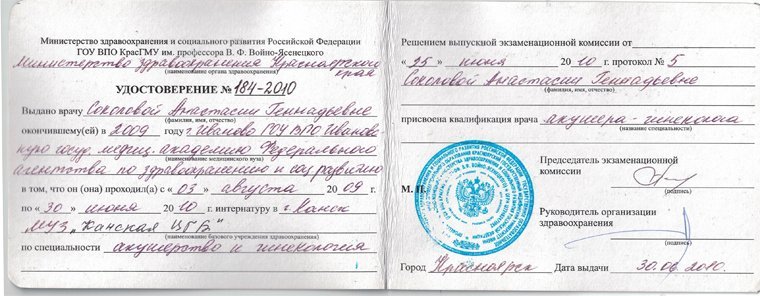 Министерство здравоохранения и социального развития Российской Федерации
ГОУ ВПО КрасГМУ им. профессора В. Ф. Войно-Ясенецкого
Министерство здравоохранения Красноярского
края
(наименование органа здравоохранения)
УДОСТОВЕРЕНИЕ № 184-2010
Выдано врачу Соколовой Анастасии Геннадьевне
(фамилия, имя, отчество)
окончившему(ей) в 2009 году г. Иваново ГОУ ВПО Иванов
скую госуд. медиц. академию Федерального
(наименование медицинского вуза)
агентства по здравоохранению и соц развитию
в том, что он (она) проходил(а) с « 03 » августа 2009 г.
по « 30 » июня 2010 г. интернатуру в г. Канск
МУЗ "Канская ЦГБ"
(наименование базового учреждения здравоохранения)
по специальности акушерство и гинекология
Решением выпускной экзаменационной комиссии от
« 25 » июня 2010 г. протокол № 5
Соколовой Анастасии Геннадьевне
(фамилия, имя, отчество)
присвоена квалификация врача акушера-гинеколога
(название специальности)
Председатель экзаменационной
комиссии
(подпись)
М. П.
Руководитель организации
здравоохранения
(подпись)
Город Красноярск Дата выдачи 30.06.2010.